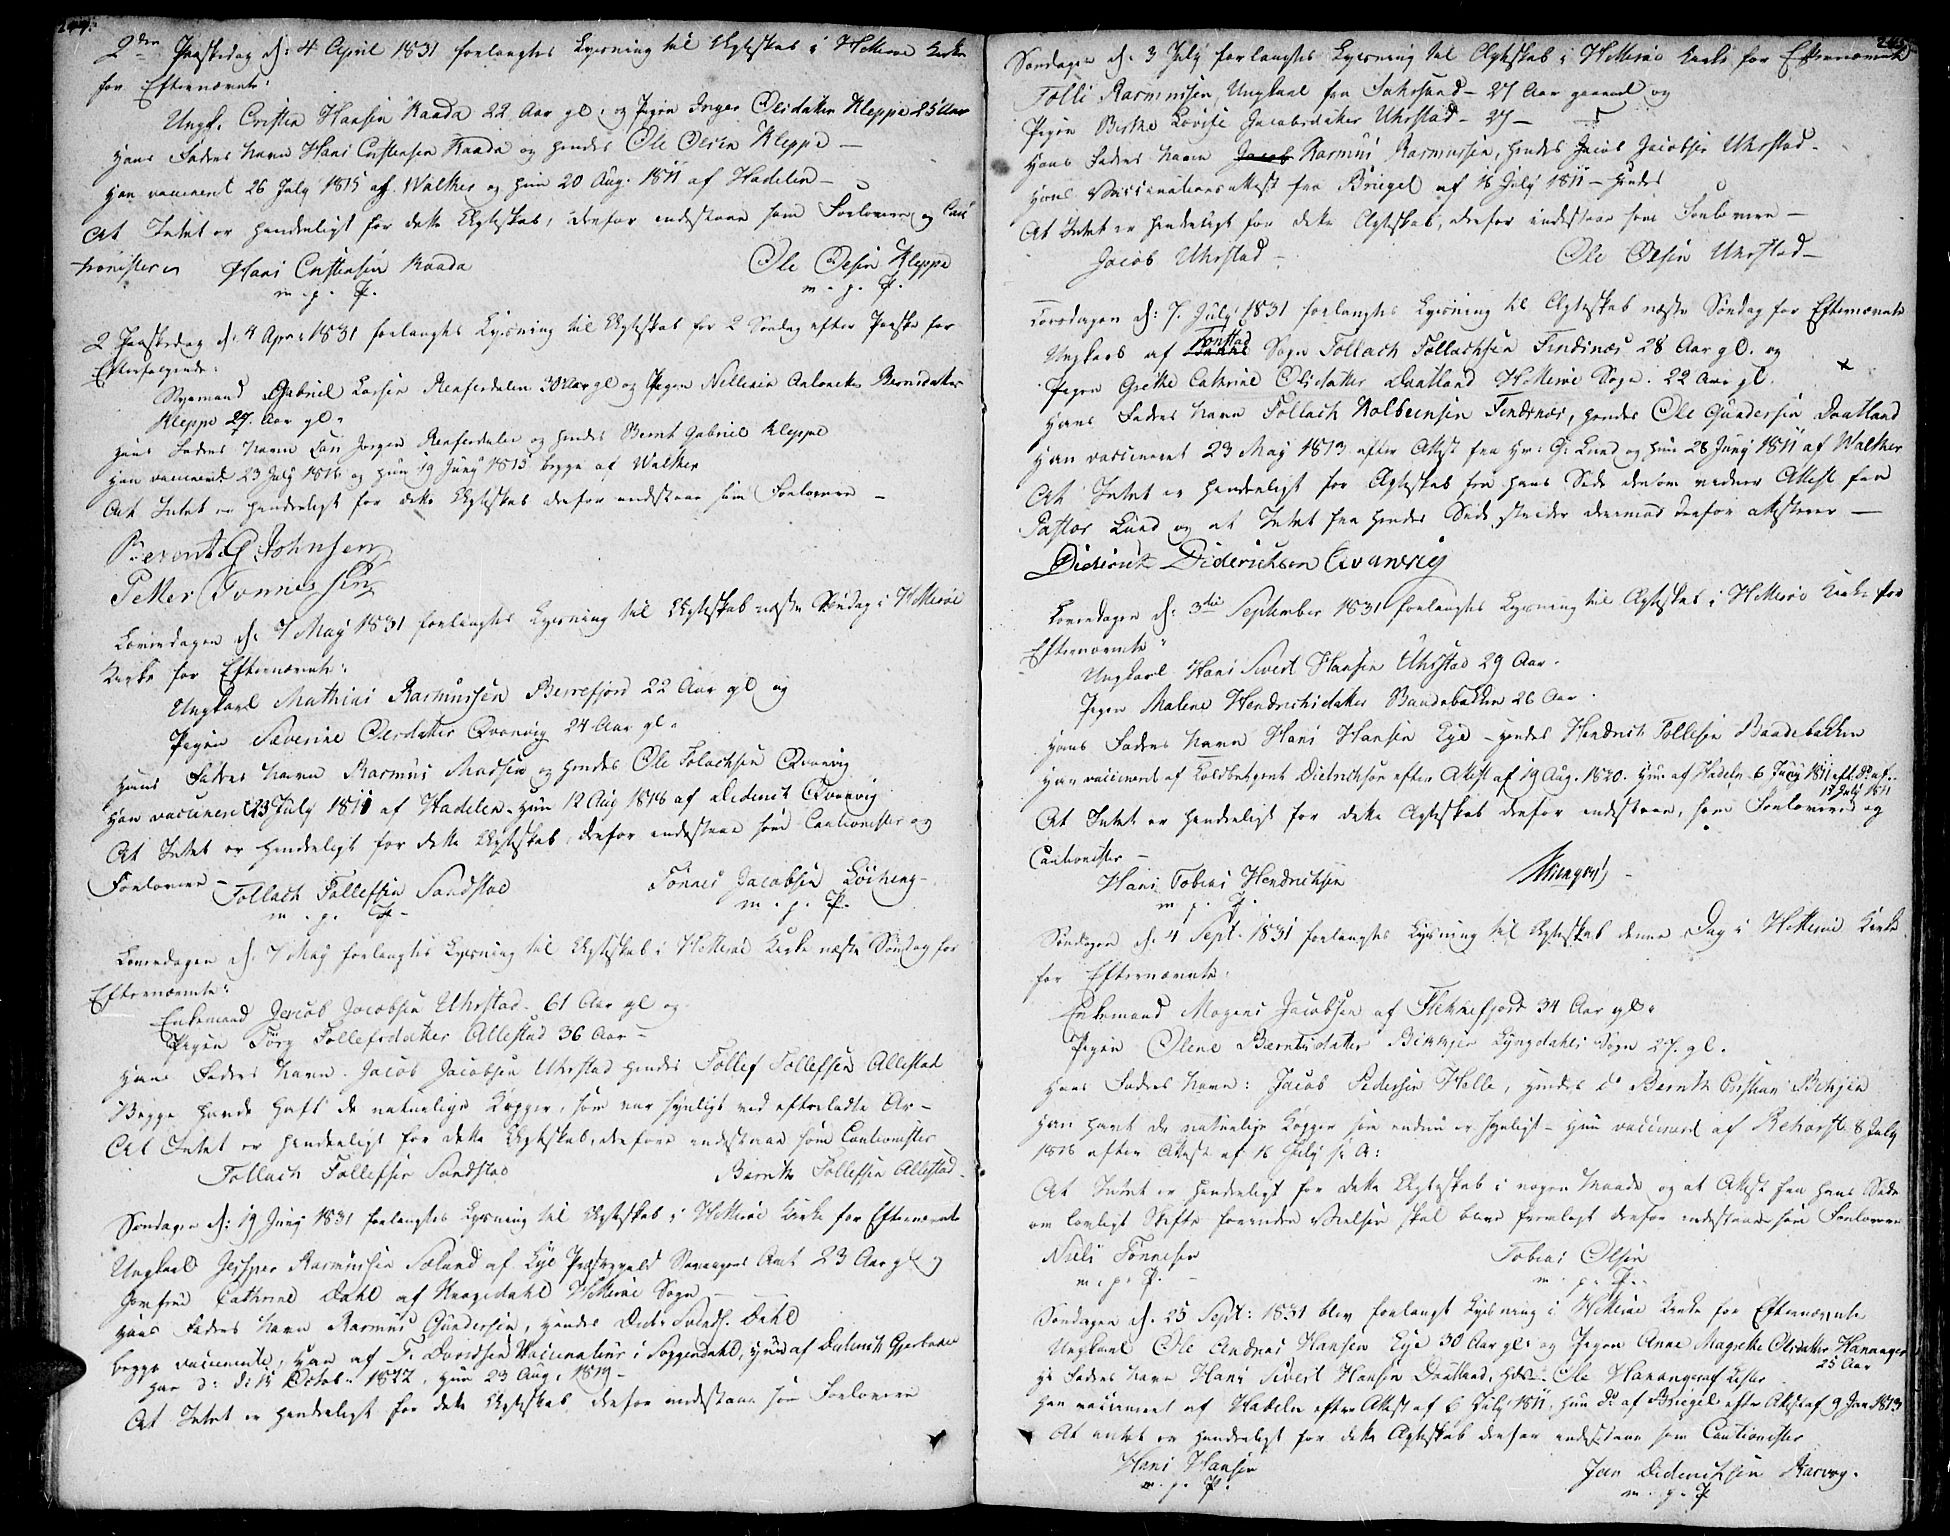 2den Paaskedag d: 4 April 1831 forlangtes Lysning til Ægteskab i Hitterøe Kirke
for Efternævnte:
Ungk. Cristen Hansen Raada 22 Aar gl: og Pigen Inger Olsdatter Kleppe 25 Aar
Hans Faders Navn Hans Cristensen Raada og hendes Ole Olsen Kleppe –
Han vaccineret 26 July 1815 af Walker og hun 20 Aug. 1811 af Hadelen –
At Intet er hinderligt for dette Ægteskab, derfor indestaae som Forlovere og Cau
tionister Hans Cristensen Raada Ole Olsen Kleppe
m. p. P. m. p. P.
2 Paaskedag d: 4 Apr: 1831 forlangtes Lysning til Ægteskab for 2 Søndag efter Paaske for
Efterfølgende:
Gabriel Larsen 30 Aar gl og Pigen
Kleppe 27 Aar gl.
Hans Faders Navn Lars Jørgen og hendes Bernt Gabriel Kleppe
Han vaccineret 23 July 1816 og hun 19 Juny 1815 begge af Walker
At Intet er hinderligt for dette Ægteskab derfor indestaae som Forlovere –
Berent G Johnsen
Petter Tønnessen
Løverdagen d: 7 May 1831 forlangtes Lysning til Ægteskab næste Søndag i Hitterøe
Kirke for Efternævnte:
Ungkarl Mathias Rasmussen Berrefjord 22 Aar gl og
Pigen Severine Olsdatter Qvanvig 24 Aar gl.
Hans Faders Navn Rasmus Madsen og hendes Ole Tolachsen Qvanvig
Han vaccineret 23 July 1811 af Hadelen. Hun 12 Aug 1818 af Diderich Qvanvig
At Intet er hinderligt for dette Ægteskab, derfor indestaae som Cautionister og
Forlovere – Tollach Tollefsen Sandstøe Tønnes Jacobsen
m. p. P. m. p. P.
Løverdagen d. 7 May forlangtes Lysning til Ægteskab i Hitterøe Kirke næste Søndag for
Efternævnte:
Enkemand Jacob Jacobsen Uhrstad. 61 Aar gl og
Pigen Tollefsdatter Allestad 36 Aar –
Hans Faders Navn. Jacob Jacobsen Uhrstad hendes Tollef Tollefsen Allestad
Begge havde haft de naturlige Kopper, som var synligt ved efterladte Ar –
At Intet er hinderligt for dette Ægteskab, derfore indestaae som Cautionister
Tollach Tollefsen Sandstøe Bernt Tollefsen Allestad.
Søndagen d: 19 Juny 1831 forlangtes Lysning til Ægteskab i Hitterøe Kirke for Efternævnte
Ungkarl Jesper Rasmussen Søland af Lye Præstegjeld Stavangers Amt 23 Aar gl og
Jomfrue Cathrine Dahl af Hitterøe Sogn –
Hans Faders Navn Rasmus Gundersen, hendes Dahl
begge vaccinerte, han af T. Davidsen Vaccinateur i Soggendahl, hun af Diderich
Han d: 15 Octob: 1822, hun 23 Aug. 1819 –
At Intet er hinderligt for dette Ægteskab derfor indestaae som Forlovere
Søndagen d. 3 July forlangtes Lysning til Ægteskab i Hitterøe Kirke for Efternævnte
Tolli Rasmussen, Ungkarl fra 27 Aar gammel og
Pigen Berthe Lovise Jacobsdatter Uhrstad – 27 –
Hans Faders Navn Jacob Rasmus Rasmussen, hendes Jacob Jacobsen Uhrstad.
Hans Vaccinationsattest fra Briegel af 18 July 1811 – hendes
At Intet er hinderligt for dette Ægteskab, derfor indestaae som Forlovere –
Jacob Uhrstad – Ole Olsen Uhrstad –
Torsdagen d: 7. July 1831 forlangtes Lysning til Ægteskab næste Søndag for Efternævnte
Ungkarl af Tonstad Sogn Tollach Tollachsen Findsnæs 28 Aar gl. og
Pigen Grethe Cathrine Olsdatter Daatland Hitterøe Sogn. 22 Aar gl.
Hans Faders Navn Tollach Kolbeensen Findsnæs, hendes Ole Gundersen Daatland
Han vaccineret 23 May 1813 efter Attest fra Hr: G: Lund og hun 28 Juny 1811 af Walker
At Intet er hinderligt for Ægteskab fra hans Side Attest fra
Pastor Lund og at Intet fra hendes Side strider derimod derfor attesterer –
Diderich Diderichsen Qvanvig
Løverdagen d: 3die September 1831 forlangtes Lysning til Ægteskab i Hitterøe Kirke for
Efternævnte:
Ungkarl Hans Sivert Hansen Uhrstad 29 Aar.
Pigen Malene Hendrichsdatter Baadebakken 26 Aar.
Hans Faders Navn Hans Hansen Eye – hendes Hendrich Tollefsen Baadebakken
Han vaccineret af Diderichsen efter Attest af 19 Aug. 1820. Hun af Hadeln 6 July 1811 eft. Do af
17 July 1811
At Intet er hinderligt for dette Ægteskab derfor indestaae, som Forlovere og
Cautionister –
Hans Tobias Hendrichsen
m. p. P.
Søndagen d. 4 Sept. 1831 forlangtes Lysning til Ægteskab denne Dag i Hitterøe Kirke
for Efternævnte:
Enkemand Mogens Jacobsen af Flekkefjord 34 Aar gl.
Pigen Olene Berntsdatter Lyngdahls Sogn 27. gl.
Hans Faders Navn: Jacob Pedersen Helle, hendes do Bernt Cristian
Han havt de naturlige Kopper som endnu er synligt – Hun vaccineret af 8 July
1816 efter Attest af 16 July s. A:
At Intet er hinderligt for dette Ægteskab i nogen Maade og at Attest fra hans Side
om lovligt Skifte skal blive fremlagt derfor indestaae som Forlovere
Niels Tønnesen Tobias Olsen
m. p. P. – m. p. P.
Søndagen d. 25 Sept: 1831 blev forlangt Lysning i Hitterøe Kirke for Efternævnte
Ungkarl Ole Andreas Hansen Eye 30 Aar gl: og Pigen Anne Magrethe Olsdatter Hananger
25 Aar
Hs Faders Navn Hans Sivert Hansen Daatland, Hds – Ole Hananger af Lister
Han vaccineret af Hadeln efter Attest af 6 July 1811, hun do af Briegel efter Attest af 9 Jan 1813
At intet er hinderligt for dette Ægteskab derfor indestaae som Cautionister
Hans Hansen Jan Diderichsen Rasvog.
m. p. P. m. p. P